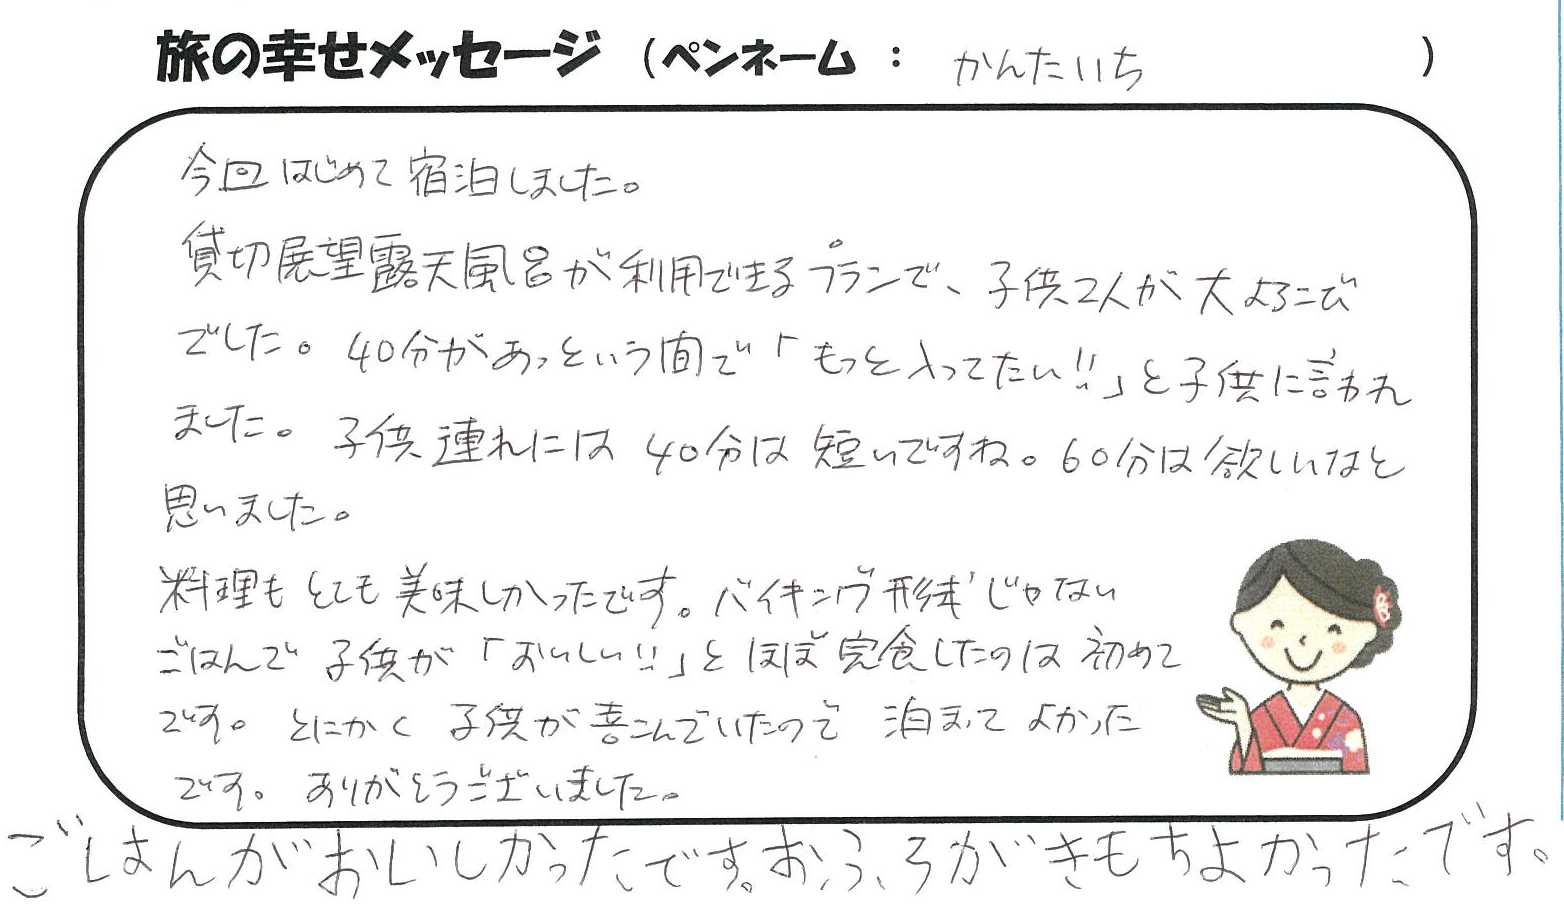 旅の幸せメッセージ (ペンネーム : かんたいち )
今回はじめて宿泊しました。
貸切展望露天風呂が利用できるプランで、子供2人が大よろこび
でした。40分があっという間で「もっと入ってたい!!」と子供に言われ
ました。子供連れには40分は短いですね。60分は欲しいなと
思いました。
料理もとても美味しかったです。バイキング形式じゃない
ごはんで子供が「おいしい!!」とほぼ完食したのは初めて
です。とにかく子供が喜こんでいたので泊まってよかった
です。ありがとうございました。
ごはんがおいしかったです。おふろがきもちよかったです。